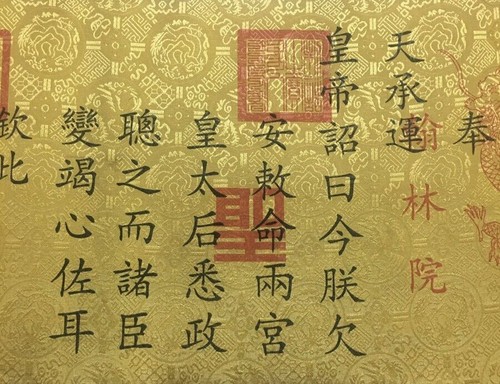 奉
天承運
皇帝詔曰今朕欠
安敕命兩宮
皇太后悉政
聰之而諸臣
變竭心佐耳
欽此
翰林院
聖